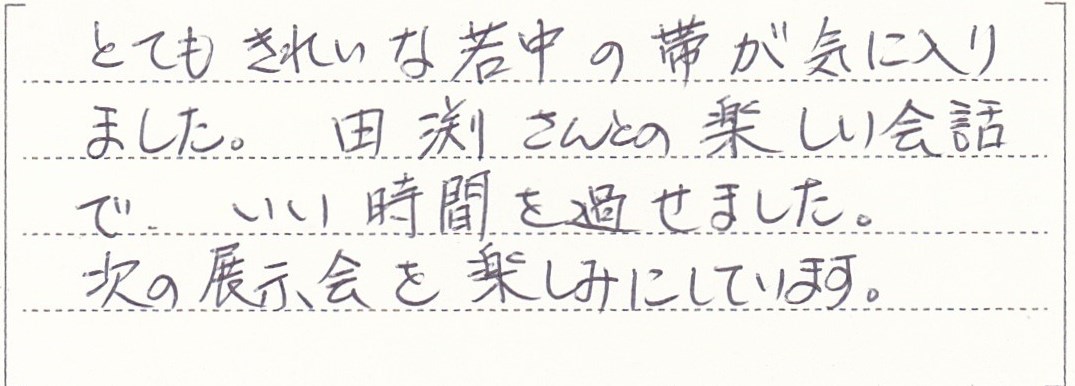 とてもきれいな若中の帯が気に入り
ました。 田渕さんとの楽しい会話
で いい時間を過せました。
次の展示会を楽しみにしています。